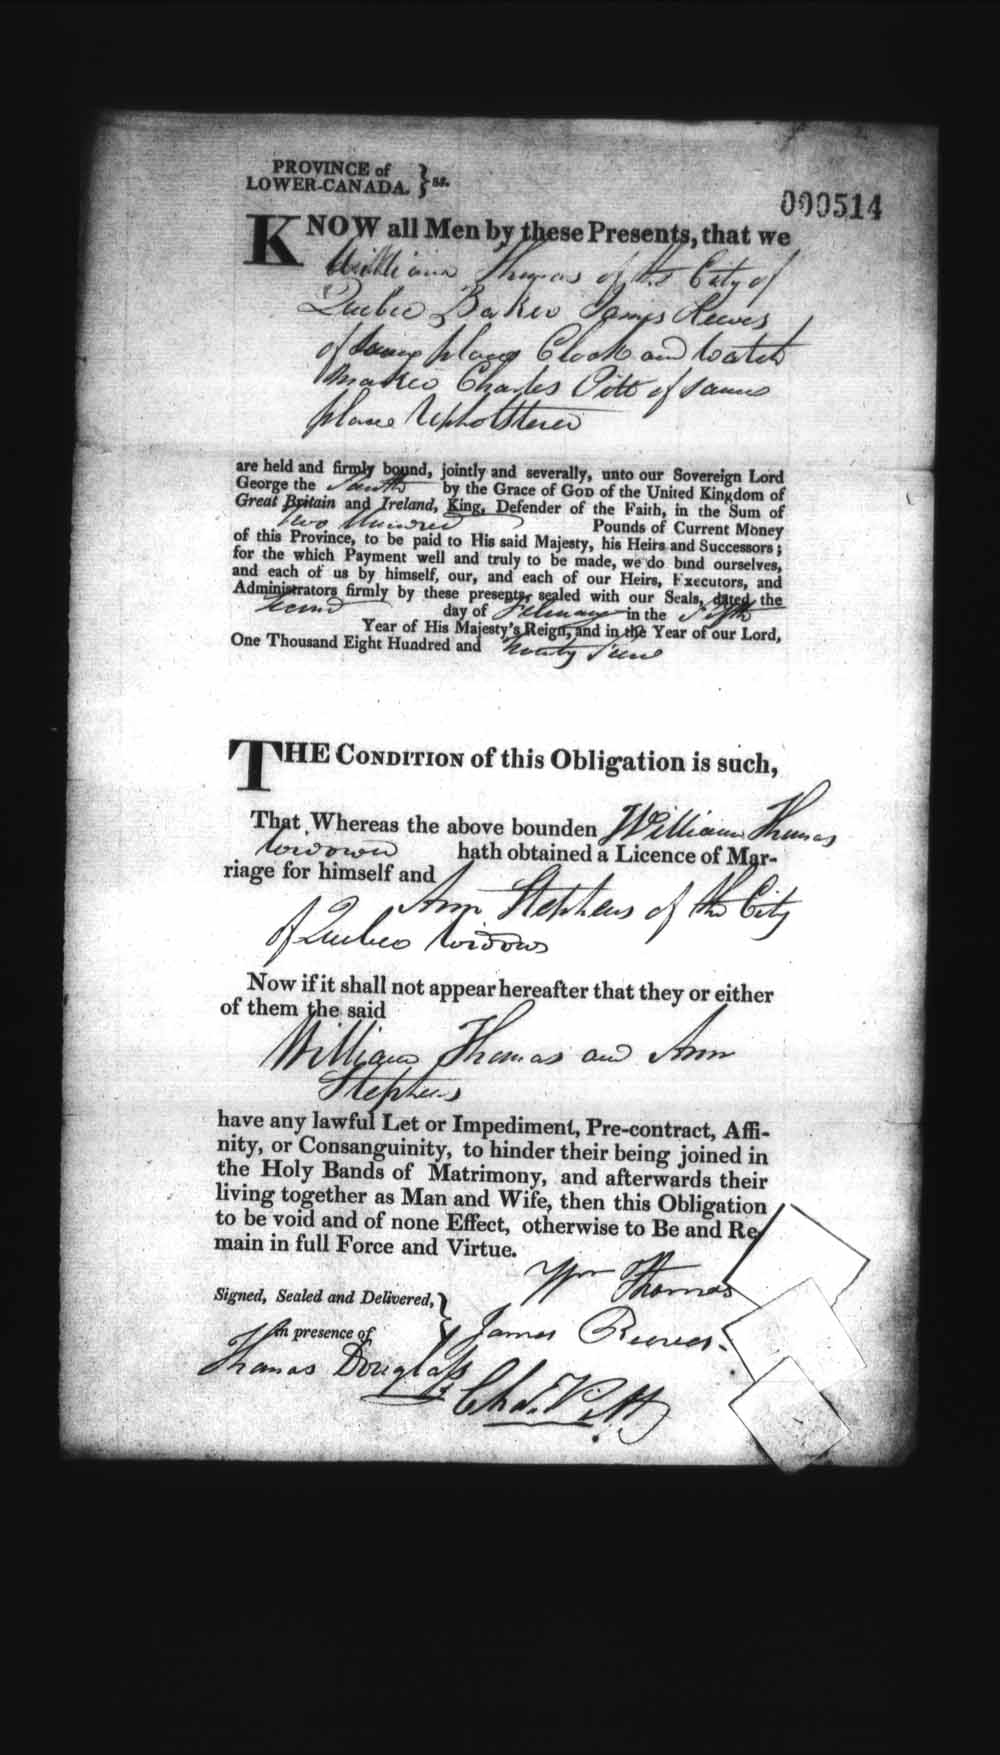 PROVINCE of
LOWER-CANADA. } ss.
000514
KNOW all Men by these Presents, that we
William Thomas of the City of
Quebec Baker James Reeves
of same place Clock and Watch
maker Charles Pitt of same
place Upholsterer
are held and firmly bound, jointly and severally, unto our Sovereign Lord
George the Fourth by the Grace of GOD of the United Kingdom of
Great Britain and Ireland, King, Defender of the Faith, in the Sum of
Two Hundred Pounds of Current Money
of this Province, to be paid to His said Majesty, his Heirs and Successors;
for the which Payment well and truly to be made, we do bind ourselves,
and each of us by himself, our, and each of our Heirs, Executors, and
Administrators firmly by these presents, sealed with our Seals, dated the
second day of February in the Fifth
Year of His Majesty's Reign, and in the Year of our Lord,
One Thousand Eight Hundred and twenty
THE CONDITION of this Obligation is such,
That Whereas the above bounden William Thomas
widower hath obtained a Licence of Mar-
riage for himself and
Ann Stephens of the City
of Quebec Widow
Now if it shall not appear hereafter that they or either
of them the said
William Thomas and Ann
Stephens
have any lawful Let or Impediment, Pre-contract, Affi-
nity, or Consanguinity, to hinder their being joined in
the Holy Bands of Matrimony, and afterwards their
living together as Man and Wife, then this Obligation
to be void and of none Effect, otherwise to Be and Re-
main in full Force and Virtue.
Wm Thomas
Signed, Sealed and Delivered, }
in presence of
James Reeves.
Thomas Douglass
Chas. Pitt